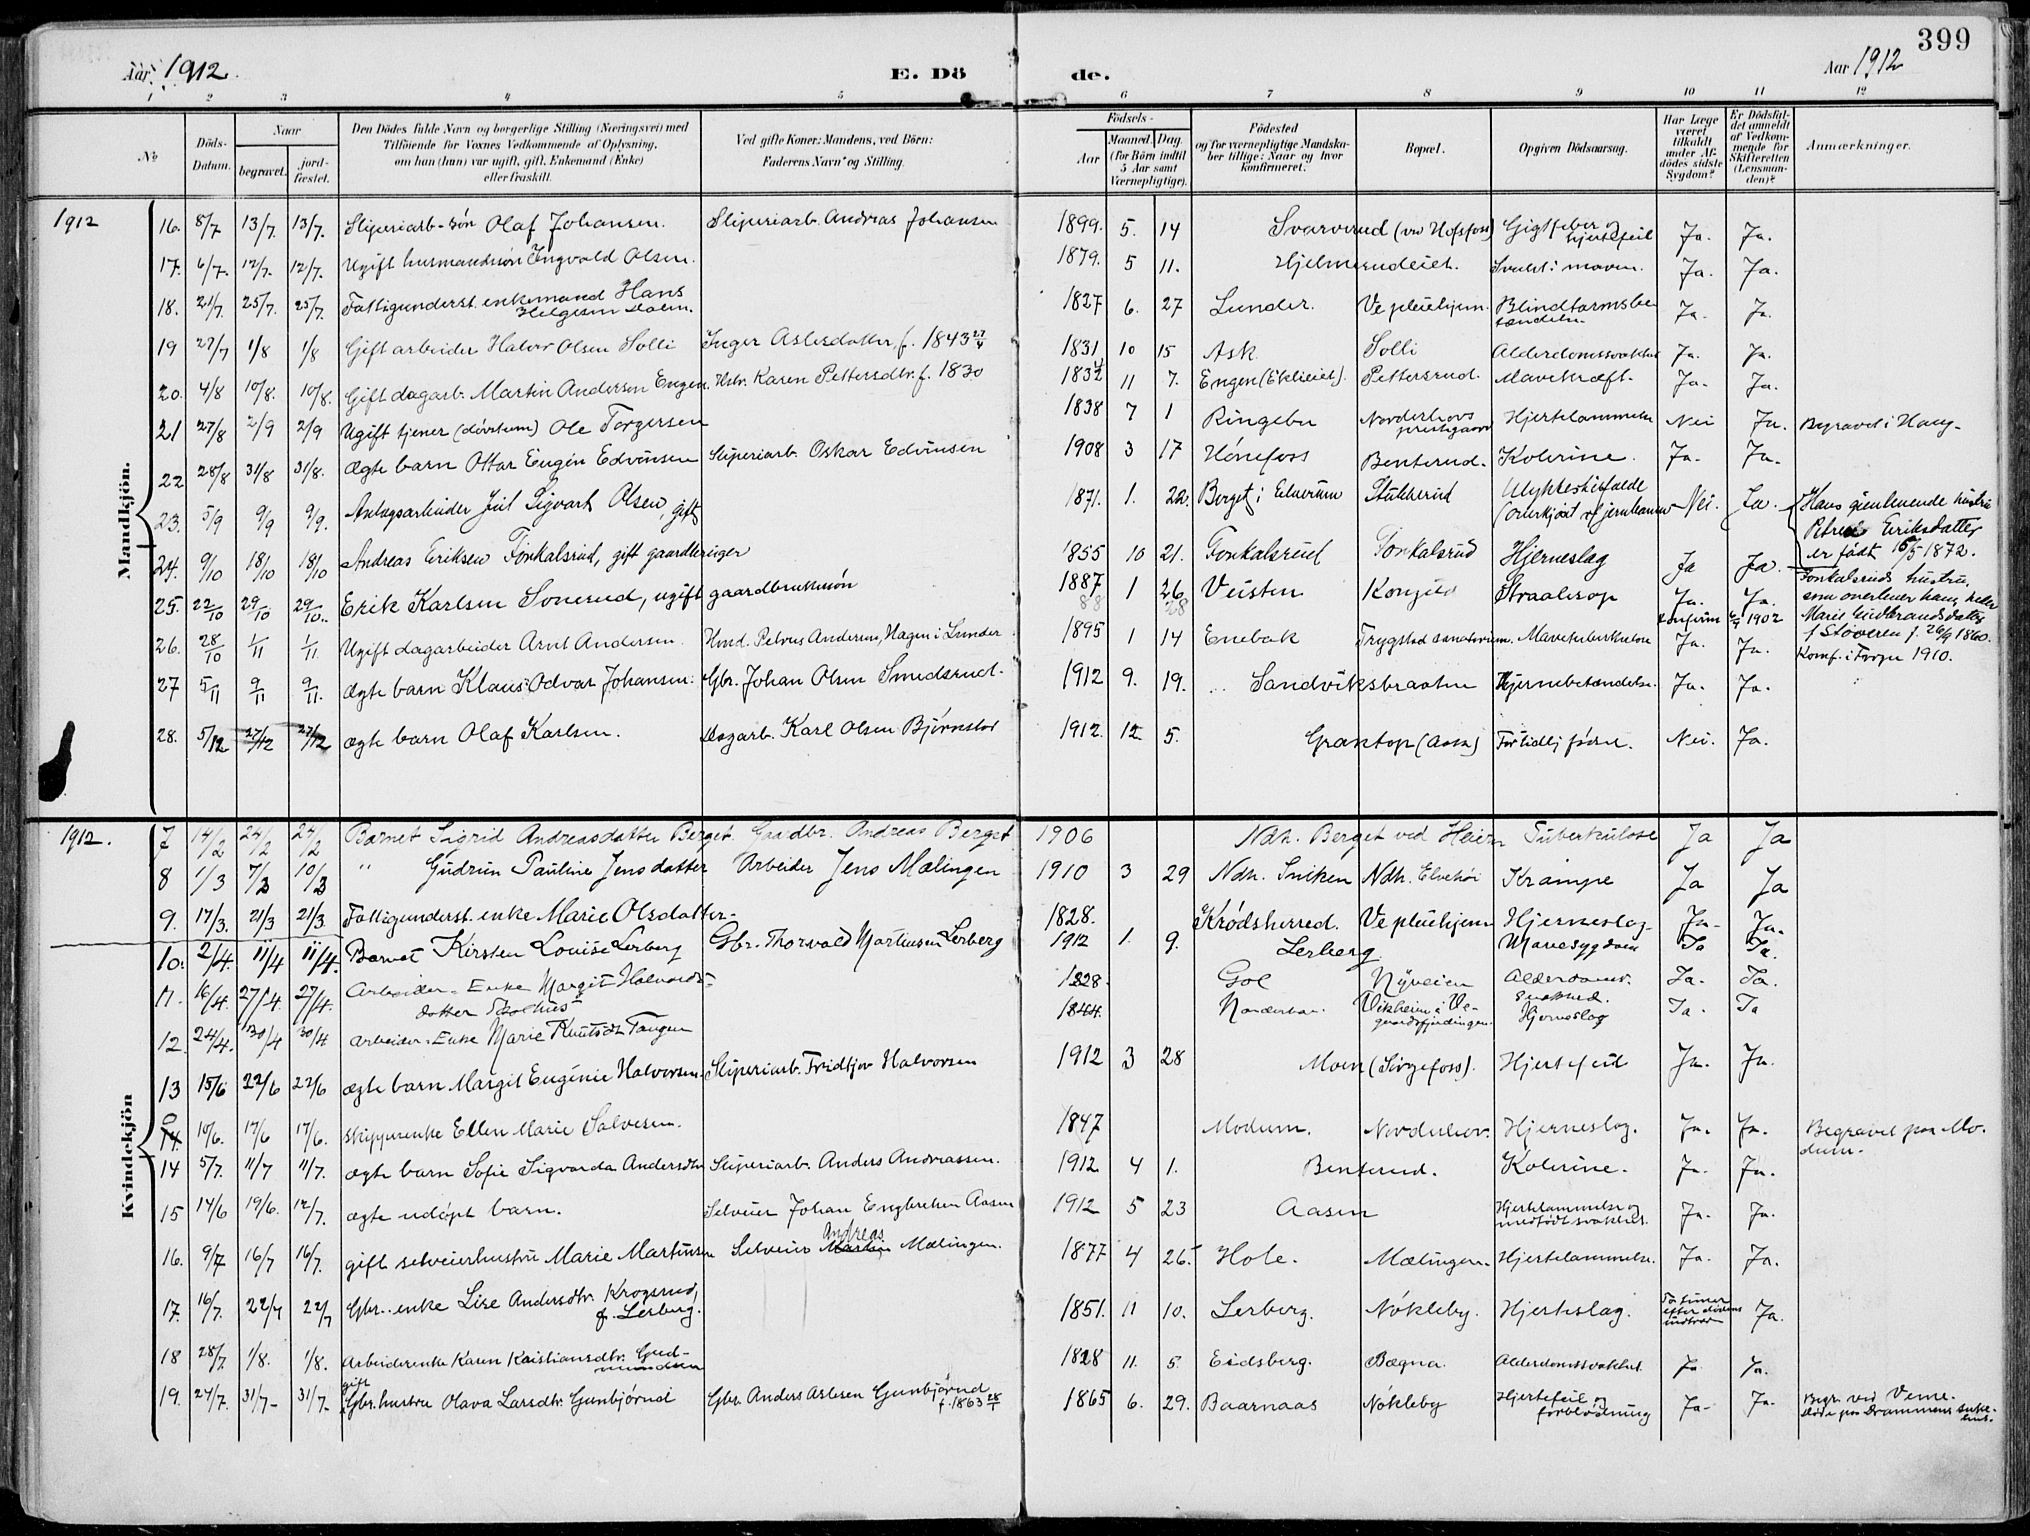 399
Aar 1912
E. Dö
de.
Aar 1912
1 2 3 4 5 6 7 8 9 10 11 12
No
Döds-Datum.
Naar
begravet.
jord-fæstet.
Den Dödes fulde Navn og borgerlige Stilling (Næringsvei) med
Tilföiende for Voxnes Vedkommende af Oplysning,
om han (hun) var ugift, gift, Enkemand (Enke)
eller fraskilt.
Ved gifte Koner: Mandens, ved Börn:
Faderens Navn og Stilling.
Födsels-
Aar
Maaned. Dag.
(for Börn indtil
5 Aar samt
Værnepligtige).
Födested
og for værnepligtige Mandska-
ber tillige: Naar og hvor
konfirmeret.
Bopæl.
Opgiven Dödsaarsag.
Har Læge
været
tilkaldt
under Af-
dödes sidste
Sygdom?
Er Dödsfal-
det anmeldt
af Vedkom-
mende for
Skifteretten
(Lensman-
den)?
Anmærkninger.
1912
Mandkjön.
16. 8/7 13/7. 13/7. Sliperiarb-søn Olaf Johansen. Sliperiarb. Andreas Johansen 1899. 5. 14 Svarverud (ved Hofsfoss) Gigtfeber og hjertefeil Ja. Ja.
17. 6/7. 12/7. 12/7. Ugift husmandssøn Ingvald Olsen. 1879. 5 11. Hjelmerudeiet. Svulst i maven. Ja. Ja.
18. 21/7. 25/7. 25/7. Fattigunderst. enkemand Hans Helgesen 1827 6. 27 Lunder. Ve pleiehjem. Blindtarmsbe-tændelse Ja. Ja.
19 27/7 1/8 1/8 Gift arbeider Halvor Olsen Solli Inger Aslesdatter, f. 1843 27/4 1831 10 15 Ask Solli Alderdomssvakhet Ja. Ja.
20. 4/8 10/8. 10/8. Gift dagarb. Martin Andersen Engen. Hstr. Karen Pettersdtr. f. 1830 1832 11 7. Engen (Eklieiet). Pettersrud. Mavekræft. Ja. Ja.
21 27/8 2/9 2/9 Ugift tjener (døvstum) Ole Torgersen 1838 7 1 Ringebu Norderhovs prestegaard Hjertelammelse Nei Ja. Begravet i Haug
22 28/8 31/8 31/8. ægte barn Ottar Eugén Edvinsen Sliperiarb. Oskar Edvinsen 1908 3 17 Hönefoss Benterud. Kolerine. Ja. Ja.
23. 5/9 9/9 9/9. Anlægsarbeider Juel Sigvart Olsen, gift 1871. 1. 22. Berget i Elverum Stubberud Ulykkestilfælde (overkjørt af jernbanen Nei. Ja. Hans gjenlevende hustru Petrea Eriksdatter er født 15/5 1872.
24. 9/10 18/10 18/10 Andreas Eriksen Fonkalsrud, gift gaardbruger 1855 10 21. Fonkalsrud Fonkalsrud Hjerneslag Ja Ja. Fonkalsruds hustru, som overlever ham, heder Marie Gudbrandsdatter f. Støveren f. 26/9 1860.
25. 22/10 29/10 29/10. Erik Karlsen Sonerud, ugift gaardbrukersøn 1887 1 26 Veisten Kongslo Straalesop Ja. Ja.
26. 28/10 1/11 1/11. Ugift dagarbeider Arnt Andersen. Hmd. Petrus Andersen, Hagen i Lunder 1895 1 14 Enebak Trygstad sanatorium. Mavetuberkulose Ja. Ja. Konf. i Trogn 1910.
27 5/11 9/11 9/11. ægte barn Klaus Odvar Johansen. Gbr. Johan Olsen Smedsrud. 1912 9. 19. Sandviksbraaten Hjernebetændelse. Ja. Ja.
28. 5/12 27/12 27/12 ægte barn Olaf Karlsen. Dagarb. Karl Olsen Bjørnstad 1912. 12. 5. Grantop (Aasa) Fortidlig födsel. Nei. Ja.
1912.
Kvindekjön
7 14/2 24/2 24/2 Barnet Sigrid Andreasdatter Berget. Grdbr. Andreas Berget 1906 Ndh. Berget ved Heien Tuberkulose Ja Ja
8 1/3 7/3 10/3 " Gudrun Pauline Jensdatter Arbeider Jens Mælingen 1910 3 29 Ndh. Sniken Ndh. Elvehöi Krampe Ja Ja
9. 17/3. 21/3 21/3 Fattigunderst. enke Marie Olsdatter. 1828. Krødsherred. Ve pleiehjem Hjerneslag. Ja. Ja.
10. 2/4. 11/4 11/4. Barnet Kirsten Louise Lerberg Gbr. Thorvald Martinsen Lerberg 1912 1. 9. Lerberg Mavesygdom Ja Ja.
11. 16/4. 27/4 27/4. Arbeider-Enke Margit Halvordsdatter 1828. Gol Nyveien Alderdoms- Ja. Ja.
12. 24/4. 30/4 30/4 Arbeider-Enke Marie Knutsdtr Tangen 1844. Norderhov. Vikheim i Ve-gaardsfjerdingen Hjerneslag Ja. Ja
13 15/6 22/6 22/6 ægte barn Margit Eugénie Halvorsen. Sliperiarb. Fridtjov Halvorsen 1912 3 28 Moen (Sørgefoss). Hjertefeil Ja. Ja.
0 14 10/6. 17/6 17/6. skipperenke Ellen Marie Salvesen. 1847 Modum. Norderhov. Hjerneslag. Ja. Ja. Begravet paa Mo-dum.
14 5/7. 11/7 11/7. ægte barn Sofie Sigvarda Andersdtr Sliperiarb. Anders Andreassen. 1912 4 1. Benterud. Kolerine. Ja. Ja.
15 14/6 19/6. 12/7. ægte udøpt barn. Selveier Johan Engbretsen Aasen 1912 5 23 Aasen Hjertelammelse og medfødt svakhet. Ja. Ja.
16. 9/7 16/7 16/7. gift selveierhustru Marie Martinsen Selveier Andreas Mælingen. 1877 4 26. Hole. Mælingen. Hjertelammelse. Ja. Ja.
17. 16/7. 22/7 22/7 Gbr. enke Lise Andersdtr. Krogsrud, f. Lerberg. 1851. 11 10. Lerberg. Nøkleby. Hjerteslag. To timer efter dødens indtræden Ja.
18 28/7. 1/8. 1/8. Arbeiderenke Karen Kristiansdtr. Gud-mundsen 1828 11. 5. Eidsberg. Bægna. Alderdomssvakhet. Ja Ja.
19. 27/7. 31/7- 31/7- gift Gbr. hustru Olava Larsdtr. Gunbjörnd Gbr. Anders Aslesen Gunbjörnd f. 1863 28/1 1865 6. 29. Baarnaas Nøkleby Hjertefeil og forblødning Ja- Ja. Begr. ved Veme. Døde paa Drammens syke-hus.